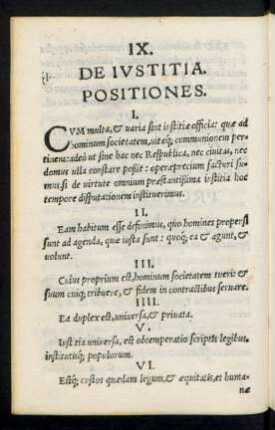 IX.
DE IVSTITIA.
POSITIONES.
I.
CVM multa, & uaria sint iustitiæ officia: quæ ad
hominum societatem, uitæq́; communionem per-
tineu: adeò ut sine hac nec Respublica, nec ciuitas, nec
domus ulla constare possit: operæprecium facturi su-
mus: si de uirtute omnium præstantissima iustitia hoc
tempore disputationem instituerimus.
II.
Eam habitum esse definimus, quo homines propensi
sunt ad agenda, quæ iusta sunt: quoq́; ea & agunt, &
uolunt.
III.
Cuius proprium est, hominum societatem tueri: &
suum cuiq; tribuere, & fidem in contractibus seruare.
IIII.
Ea duplex est, uniuersa, & priuata.
V.
Iustitia uniuersa, est obtemperatio scriptis legibus,
institutisq́; populorum.
VI.
Estq́; custos quædam legum, & æquitatis, et huma-
næ